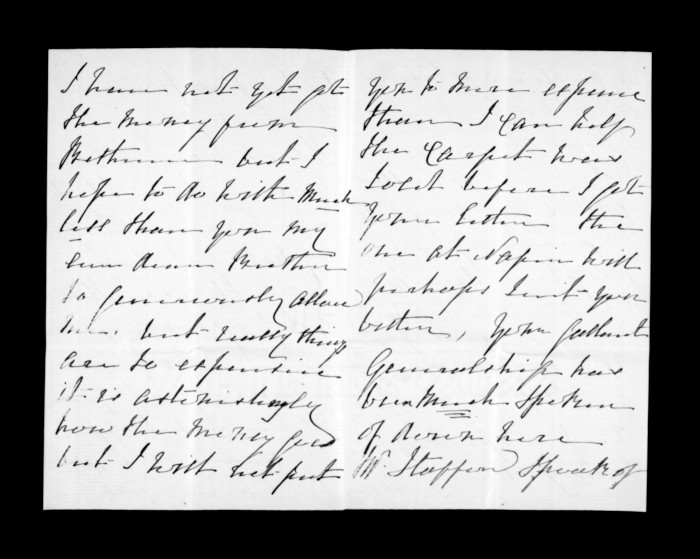 I have not yet got
the money from
but I
hope to do with much
less than you my
own dear Brother
so generously allow
me. but really things
are so expensive
it is astonishingly
how the money goes
but I will not put
you to more expense
than I can help
the carpet was
sold before I got
your letter the
one at Napier will
perhaps suit you
better, your gallant
Generalship has
been much spoken
of down here
Mr. speak of